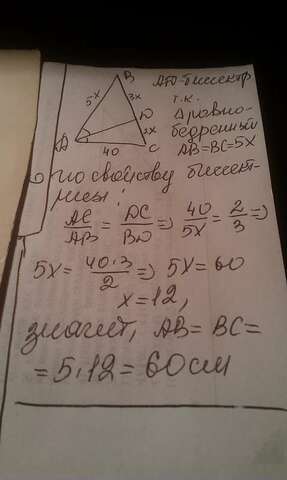 B
5x
3x
D
2x
A
40
C
AD-биссектр
т.к. Δ равно-
бедренный
AB=BC=5X
по свойству биссект-
рисы:
AC/AB = DC/BD => 40/5X = 2/3 =>
5X = 40·3/2 => 5X = 60
X=12,
значит, AB = BC =
= 5·12 = 60см